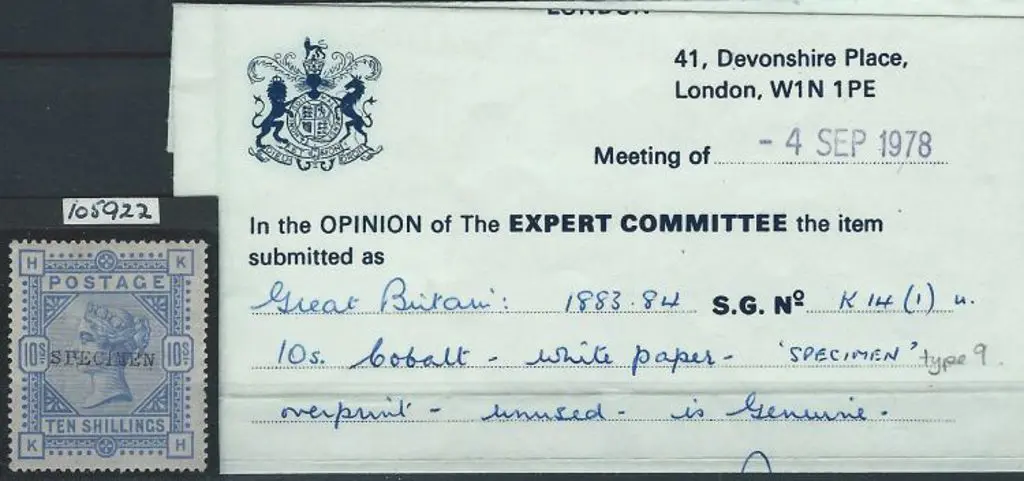 LONDON
41, Devonshire Place,
London, W1N 1PE
Meeting of - 4 SEP 1978
In the OPINION of The EXPERT COMMITTEE the item
submitted as
Great Britain: 1883-84 S.G. Nº K14(1) u.
10s. Cobalt - white paper - 'SPECIMEN' type 9.
overprint - unused - is Genuine.
105922
H K
POSTAGE
10S SPECIMEN 10S
TEN SHILLINGS
K H